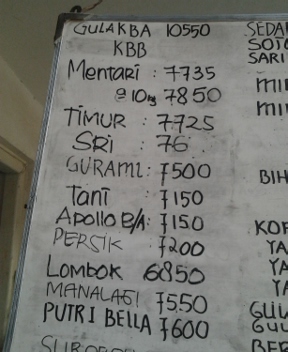 GULAKBA 10550
KBB
Mentari : 7735
@ 10kg 7850
TIMUR : 7725
SRI : 76.
GURAMI : 7500
Tani : 7150
Apollo B/A : 7150
PERSIK : 7200
Lombok 6850
MANALAGI 7550
PUTRI BELLA 7600
SEDA
SOTO
SARI
BIH
KOP
YA
YA
YA
GUL
GUL
BER